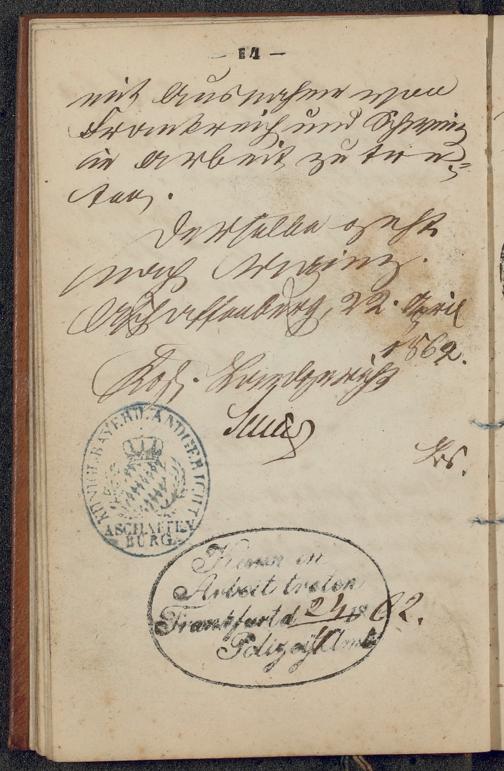 — 14 —
mit Ausnahme von
Frankreich und Schweiz
in Arbeit zu tre-
ten.
Derselbe geht
nach Mainz.
Aschaffenburg, 22. April
1862.
Kgl. Landgericht
KÖNIGL. BAYER. LANDGERICHT
ASCHAFFEN
BURG.
Kann in
Arbeit treten
Frankfurt d 24/4 1862.
Polizei Amt